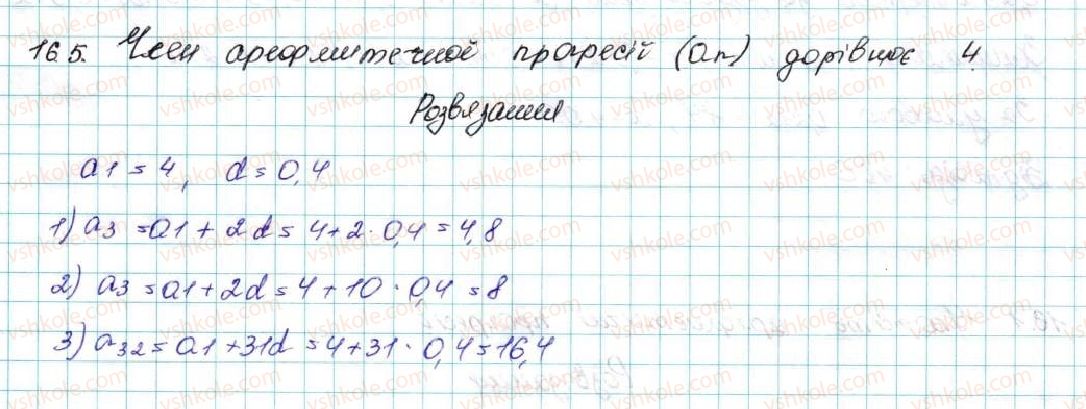 16.5. Член арефметечної прогресії (an) дорівнює 4.
Розвязання
a1 = 4, d = 0,4
1) a3 = a1 + 2d = 4 + 2 · 0,4 = 4,8
2) a3 = a1 + 2d = 4 + 10 · 0,4 = 8
3) a32 = a1 + 31d = 4 + 31 · 0,4 = 16,4